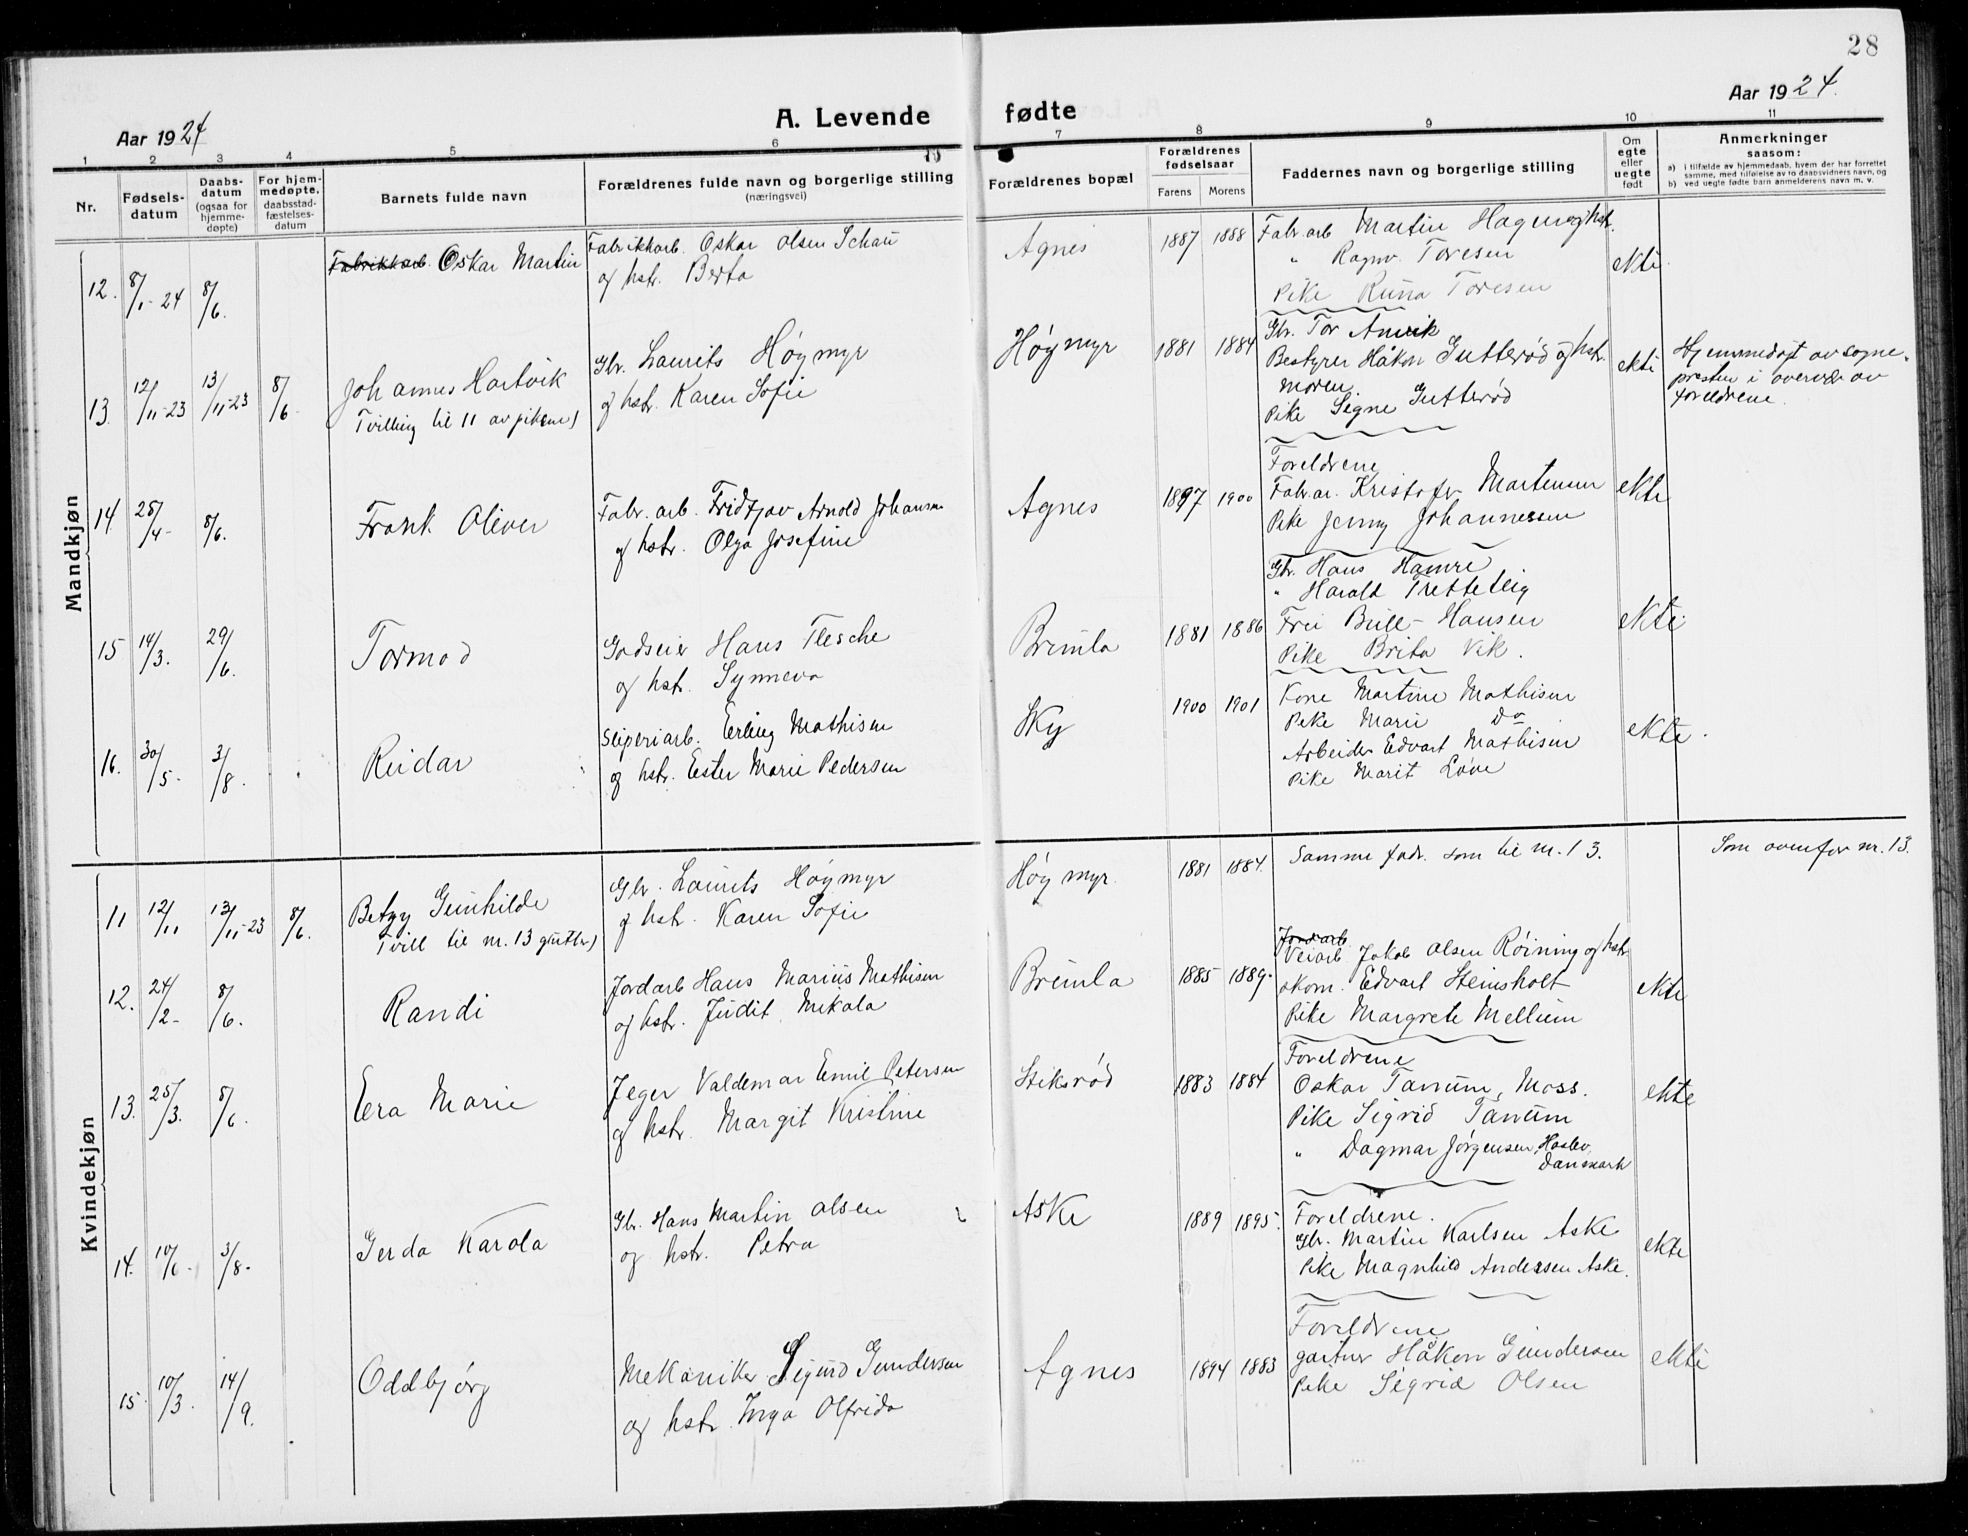 28
Aar 1924
A. Levende fødte
Aar 1924.
1 2 3 4 5 6 7 8 9 10 11
Nr.
Fødsels-
datum
Daabs-
datum
(ogsaa for
hjemme-
døpte)
For hjem-
medøpte,
daabsstad-
fæstelses-
datum
Barnets fulde navn
Forældrenes fulde navn og borgerlige stilling
(næringsvei)
Forældrenes bopæl
Forældrenes
fødselsaar
Farens Morens
Faddernes navn og borgerlige stilling
Om
egte
eller
uegte
født
Anmerkninger
saasom:
a) i tilfælde av hjemmedaab, hvem der har forrettet
samme, med tilføielse av to daabsvidners navn, og
b) ved uegte fødte barn anmelderens navn m. v.
Mandkjøn
12. 8/1-24 8/6. Fabrikkarb. Oskar Martin
Fabrikkarb. Oskar Olsen Schau
og hstr. Berta
Agnes 1887 1888
Fabr.arb Martin Hagnes og hstr.
" Ragnv. Toresen
Pike Runa Toresen
ekte.
13. 12/11-23 13/11-23 8/6
Johannes Hartvik
Tvilling til 11 av pikene)
Gbr. Laurits Høgmyr
og hstr. Karen Sofie
Høgmyr 1881 1884
Gbr. Tor Anvik
Bestyrer Håkon Gutterød og hstr.
Moren
Pike Signe Gutterød
ekte
Hjemmedøpt av sogne-
presten i overvær av
foreldrene.
14 25/4- 8/6.
Frank Oliver
Fabr. arb. Fridtjov Arnold Johansen
og hstr. Olga Josefine
Agnes 1897 1900
Foreldrene
Fabr.ar. Kristofer Martensen
Pike Jenny Johannesen
ekte
15 14/3. 29/6.
Tormod
Godseier Hans Flesche
og hstr. Synneva
Brunla 1881 1886
Gbr. Hans Hamre
" Harald Tretteteig
Fru Bull-Hansen
Pike Brita Vik.
ekte.
16. 30/5. 3/8.
Reidar
Sliperiarb. Erling Mathisen
og hstr. Ester Marie Pedersen
Sky 1900 1901
Kone Martine Mathisen
Pike Marie Do
Arbeider Edvart Mathisen
Pike Marit Løve
ekte.
Kvindekjøn
11 12/11 13/11-23 8/6.
Betzy Gunhilde
Tvill til nr. 13 gutter)
Gbr. Laurits Høgmyr
og hstr. Karen Sofie
Høgmyr. 1881 1884.
Samme fadr. som til nr. 13.
Som ovenfor nr. 13.
12. 24/2- 8/6.
Randi
Jordarb Hans Marius Mathisen
og hstr. Judit Mikala
Brunla 1885 1889.
Jordarb
Veiarb. Jakob Olsen Røining og hstr
skom. Edvart Steinsholt
Pike Margrete Mellum
ekte
13. 25/3. 8/6.
Eva Marie
Jeger Valdemar Emil Petersen
og hstr. Margit Kristine
Stiksrød 1883 1884
Foreldrene
Oskar Tanum, Moss.
Pike Sigrid Tanum
" Dagmar Jørgensen, Haslev,
Danmark
ekte
14. 10/6- 3/8-
Gerda Karola
Gbr. Hans Martin Olsen
og hstr. Petra
Aske 1889 1895.
Foreldrene.
Gbr. Martin Karlsen Aske
Pike Magnhild Andersen Aske.
ekte
15 10/3. 14/9.
Oddbjørg
Mekaniker Sigurd Gundersen
og hstr. Inga Olfrida
Agnes 1894 1883
Foreldrene
gartner Håkon Gundersen
Pike Sigrid Olsen
ekte